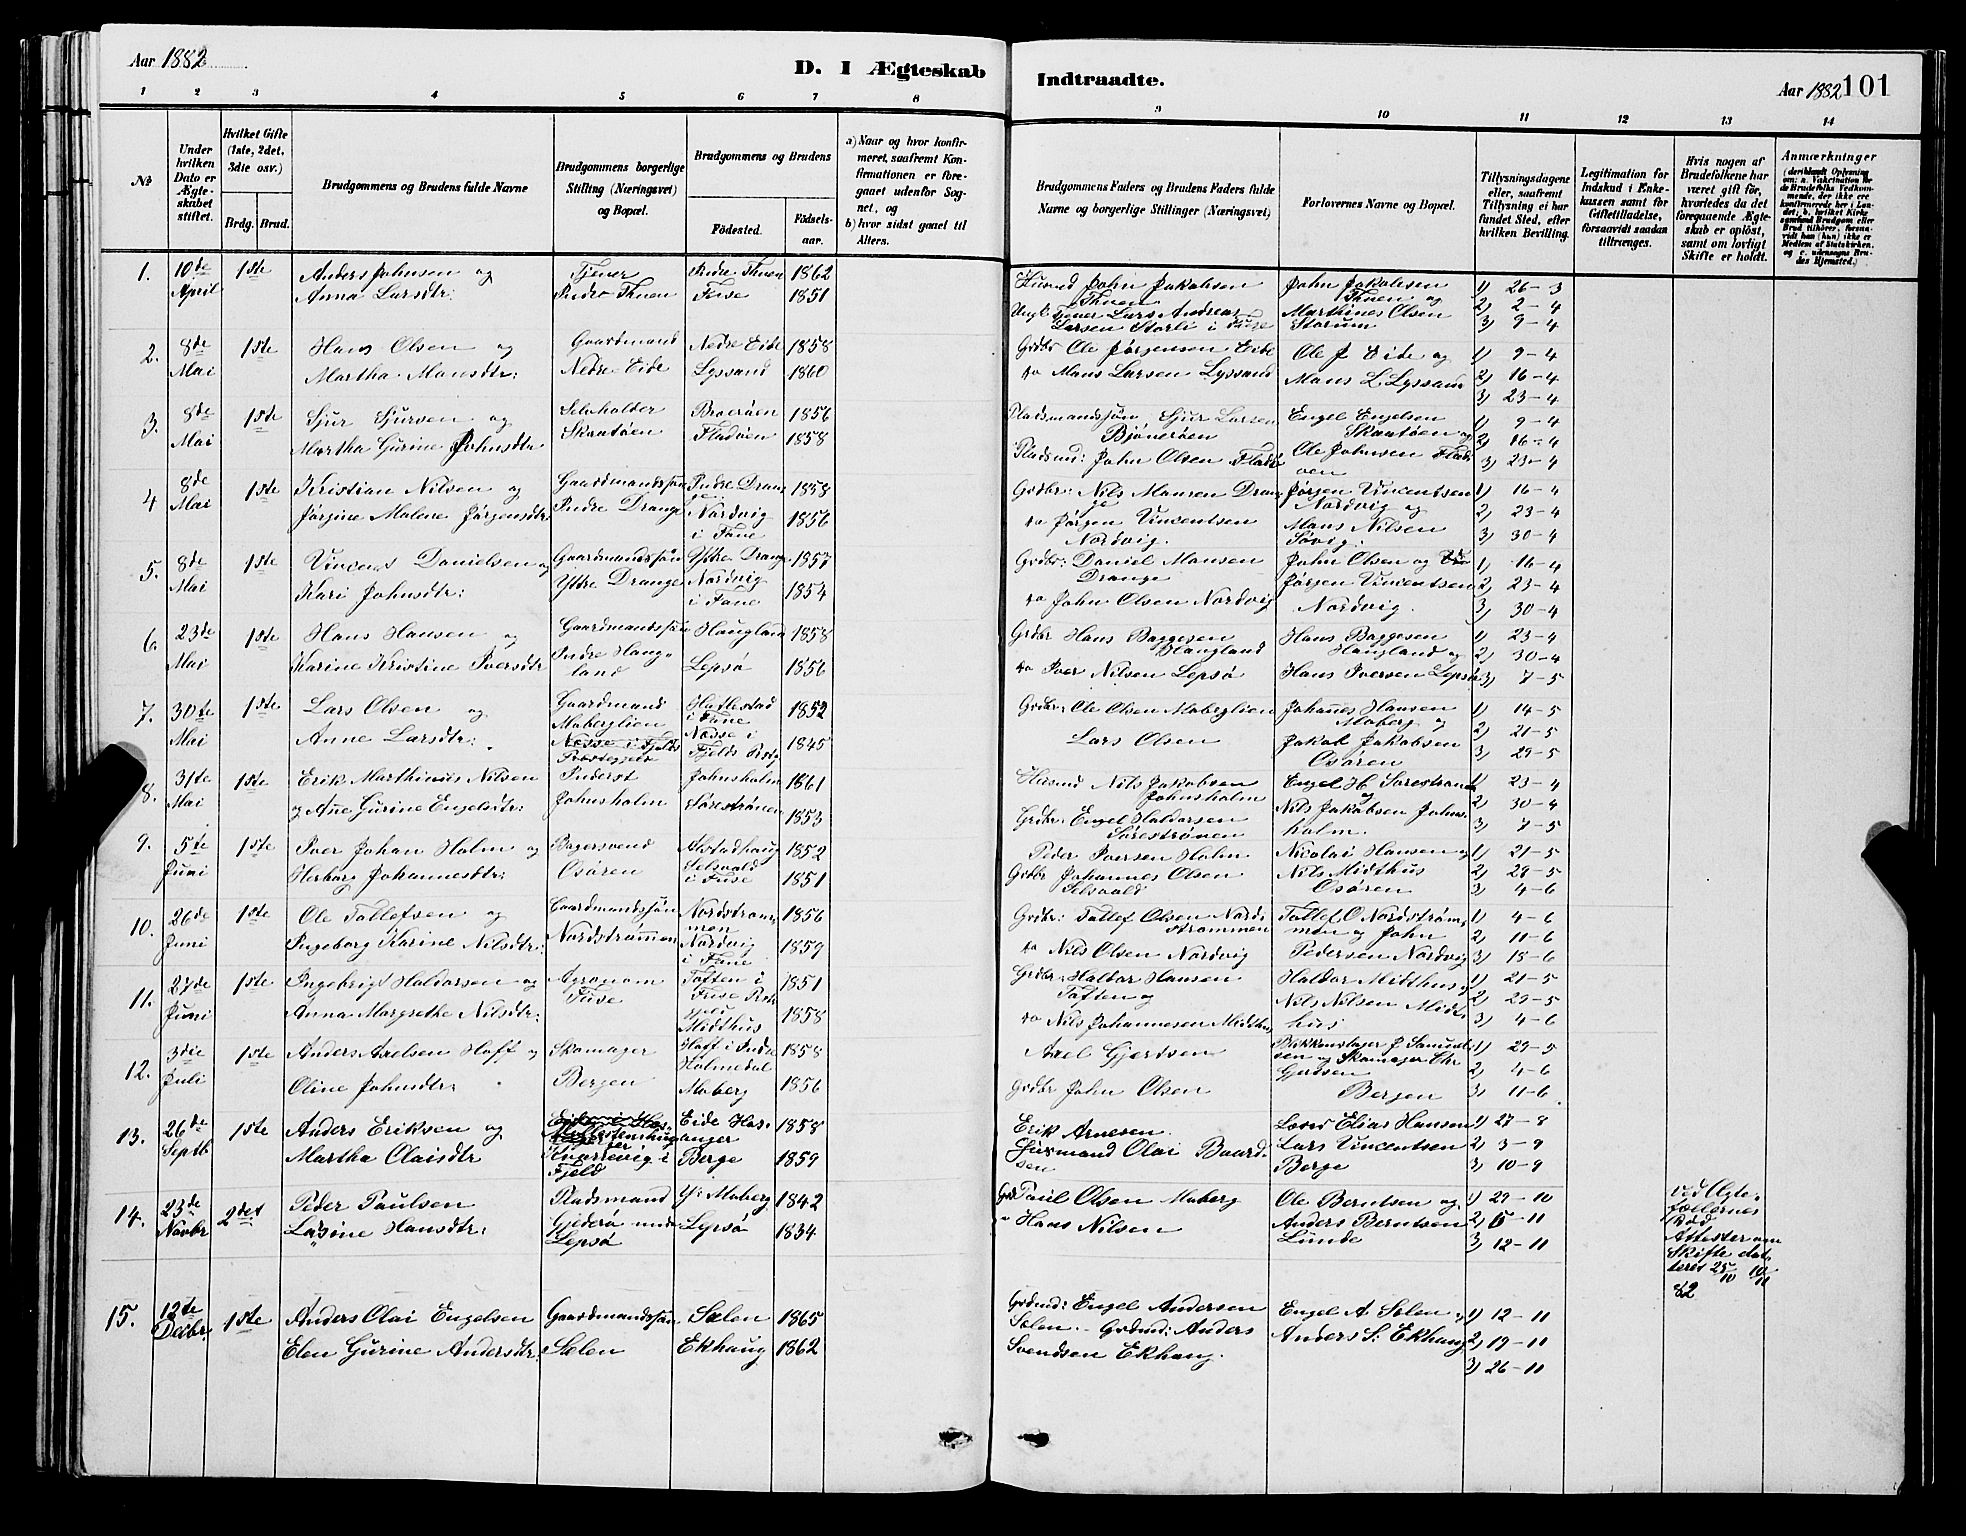 Aar 1882
D. I Ægteskab
Indtraadte.
Aar 1882 101
1 2 3 4 5 6 7 8
9 10 11 12 13 14
№
Under hvilken Dato er Ægteskabet stiftet.
Hvilket Gifte (1ste, 2det, 3die osv.)
Brdg. Brud.
Brudgommens og Brudens fulde Navne
Brudgommens borgerlige Stilling (Næringsvei) og Bopæl.
Brudgommens og Brudens
Fødested.
Fødsels-aar.
a) Naar og hvor konfirmeret, saafremt Konfirmationen er foregaaet udenfor Sognet, og
b) hvor sidst gaaet til Alters.
Brudgommens Faders og Brudens Faders fulde Navne og borgerlige Stillinger (Næringsvei)
Forlovernes Navne og Bopæl.
Tillysningsdagene eller, saafremt Tillysning ei har fundet Sted, efter hvilken Bevilling.
Legitimation for Indskud i Enkekassen samt for Giftetilladelse, forsaavidt saadan tiltrænges.
Hvis nogen af Brudefolkene har været gift før, hvorledes da det foregaaende Ægteskab er opløst, samt om lovligt Skifte er holdt.
Anmærkninger
1. 10de April 1ste Anders Johnsen og Tjener Indre Thuen 1862
Anna Larsdtr: Indre Thuen Fuse 1851
Husmd John Jakobsen Thuen
Lars Andreas Larsen Storli i Fuse
John Jakobsen Thuen og
Marthines Olsen Storum
1) 26-3
2) 2-4
3) 9-4
2. 8de Mai 1ste Hans Olsen og Gaardmand Nedre Eide 1858
Martha Mansdtr: Nedre Eide Lyssand 1860
Grdbr Ole Jørgensen Eide
do Mans Larsen Lyssand
Ole J Eide og
Mans L. Lyssand
1) 9-4
2) 16-4
3) 23-4
3. 8de Mai 1ste Sjur Sjursen og Selvholder 1856
Martha Gurine Johnsdtr Skaatøen Fladøen 1858
Pladsmandssøn Sjur Larsen Bjønerøen
Pladsmd: John Olsen Fladøen
Engel Engelsen Skaatøen og
Ole Johnsen Fladøen
1) 9-4
2) 16-4
3) 23-4
4 8de Mai 1ste Kristian Nilsen og Gaardmandssøn Indre Drange 1858
Jørgine Malene Jørgensdtr Indre Drange Nordvig i Fane 1856
Grdbr: Nils Mansen Drange
do Jørgen Vincentsen Nordvig.
Jørgen Vincentsen Nordvig og
Mans Nilsen Søvig.
1) 16-4
2) 23-4
3) 30-4
5. 8de Mai 1ste Vincent Danielsen og Gaardmandssøn Ytre Drange 1857
Kari Johnsdtr: Ytre Drange Nordvig i Fane 1854
Grdbr: Daniel Mansen Drange
do John Olsen Nordvig
John Olsen og
Jørgen Vincentsen Nordvig.
1) 16-4
2) 23-4
3) 30-4
6. 23de Mai 1ste Hans Hansen og Gaardmandssøn Haugland 1858
Karine Kristine Iversdtr Indre Haugland Lepsø 1856
Grdbr Hans Baggesen Haugland
do Iver Nilsen Lepsø
Hans Baggesen Haugland og
Hans Iversen Lepsø
1) 23-4
2) 30-4
3) 7-5
7. 30te Mai 1ste Lars Olsen og Gaardmand Hatlestad i Fane 1852
Anne Larsdtr: Moberglien Næsse i Fjelds Prstg 1845
Næsse i Fjelds Præstegjeld
Grdbr: Ole Olsen Moberglien
Lars Olsen
Johannes Hansen Moberg og
Jakob Jakobsen Osøren
1) 14-5
2) 21-5
3) 29-5
8. 31te Mai 1ste Erik Marthinus Nilsen Inderst Johnsholm 1861
og Ane Gurine Engelsdtr: Johnsholm Sørestrønen 1853
Husmd Nils Jakobsen Johnsholm
Grdbr: Engel Haldorsen Sørestrønen
Engel H Sørestrønen og
Nils Jakobsen Johnsholm.
1) 23-4
2) 30-4
3) 7-5
9. 5te Juni 1ste Iver Johan Holm og Bagersvend Alstadhaug 1852
Herborg Johannesdtr: Osøren Selvaald i Fuse 1851
Peder Iversen Holm
Grdbr Johannes Olsen Selvaald
Nicolai Hansen og
Nils Midthus Osøren
1) 21-5
2) 29-5
3) 4-6
10. 26de Juni 1ste Ole Tollefsen og Gaardmandssøn Nordstrømmen 1856
Ingeborg Karine Nilsdtr: Nordstrømmen Nordvig i Fane 1859
Grdbr: Tollef Olsen Nordstrømmen
do Nils Olsen Nordvig
Tollef O Nordstrømmen og John
Pedersen Nordvig
1) 4-6
2) 11-6
3) 18-6
11. 27de Juni 1ste Ingebrigt Haldorsen og Agronom Toften i Fuse 1851
Anna Margrethe Nilsdtr: Fuse Midthus 1858
Grdbr: Haldor Hansen Toften og
do Nils Johannesen Midthus
Haldor Midthus og
Nils Nilsen Midthus
1) 21-5
2) 29-5
3) 4-6
12. 3die Juli 1ste Anders Axelsen Hoff og Skomager Hoff i Indre Holmedal 1858
Oline Johnsdtr: Bergen Moberg 1856
Axel Gjertsen
Grdbr John Olsen
Blikkenslager J Samuelsen og Skomager Chr Gjertsen
Bergen
1) 29-5
2) 4-6
3) 11-6
13. 26de Septb 1ste Anders Eriksen og Eide Hosanger 1858
Martha Olaisdtr Knarrevig i Fjeld Berge 1859
Erik Arnesen.
Husmand Olai Baardsen
Elias Hansen
Lars Vincentsen Berge
1) 27-8
2) 3-9
3) 10-9
14. 23de Novbr 2det Peder Paulsen Pladsmand Y: Moberg 1842
Lasine Hansdtr: Gjederø under Lepsø Lepsø 1834
Grdb Paul Olsen Moberg
" Hans Nilsen
Ole Berntsen og
Anders Berntsen Lunde
1) 29-10
2) 5-11
3) 12-11
ved Ægtefællernes Død
Attester om Skifte datteret 25/10 10/11 82
15. 12te Decbr. 1ste Anders Olai Engelsen Gaardmandssøn Sælen 1865
Elen Gurine Andersdtr: Sælen Ekhaug 1862
Grdmd: Engel Andersen Sælen. - Grdmd: Anders
Svendsen Ekhaug.
Engel A. Sælen og
Anders S: Ekhaug
1) 12-11
2) 19-11
3) 26-11